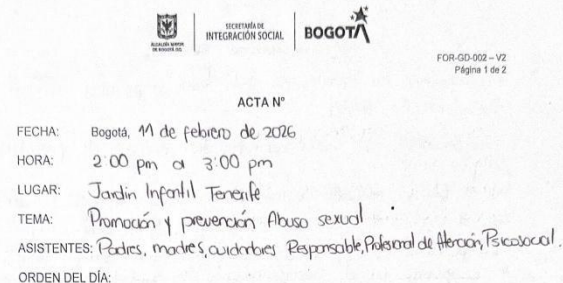 ALCALDÍA MAYOR
DE BOGOTÁ D.C.
SECRETARÍA DE
INTEGRACIÓN SOCIAL
BOGOTÁ
FOR-GD-002 – V2
Página 1 de 2
ACTA N°
FECHA: Bogotá, 11 de febrero de 2026
HORA: 2:00 pm a 3:00 pm
LUGAR: Jardin Infantil Tenerife
TEMA: Promoción y prevención Abuso sexual.
ASISTENTES: Padres, madres, cuidadores Responsable, Profesional de Atención, Psicosocial.
ORDEN DEL DÍA: